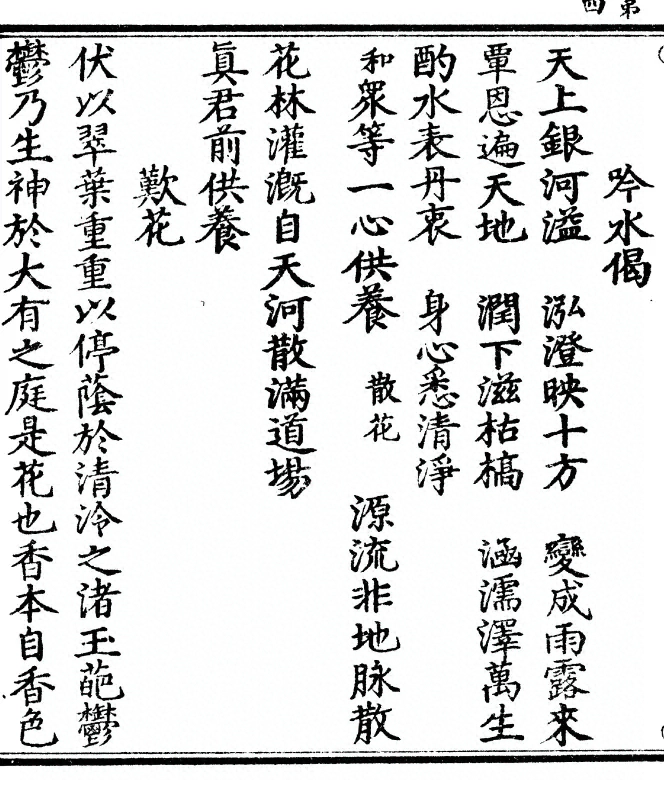 第四
吟水偈
天上銀河溢　泓澄映十方　變成雨露來
覃恩遍天地　潤下滋枯槁　涵濡澤萬生
酌水表丹衷　身心悉清淨
和衆等一心供養　散花　源流非地脉散
花林灌漑自天河散滿道場
眞君前供養
歎花
伏以翠葉重重以停蔭於清泠之渚玉葩鬱
鬱乃生神於大有之庭是花也香本自香色